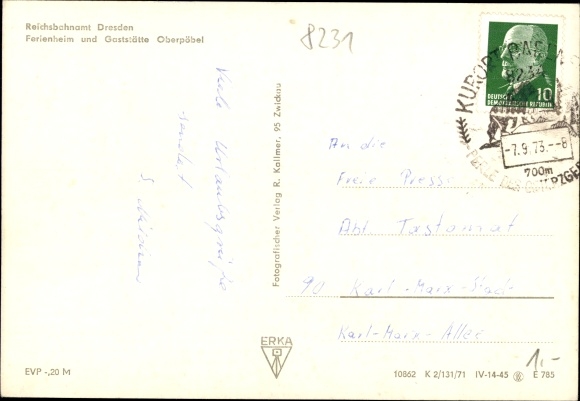 Reichsbahnamt Dresden
Ferienheim und Gaststätte Oberpöbel
8231
Viele Urlaubsgrüße
sendet
Fotografischer Verlag R. Kallmer, 95 Zwickau
DEUTSCHE
DEMOKRATISCHE REPUBLIK
10
KURORT
8232
-7.9.73.--8
700m
An die
Freie Presse
Abt. Tastomat
90 Karl-Marx-Stadt
Karl-Marx-Allee
ERKA
EVP -,20 M
10862 K 2/131/71 IV-14-45 E 785
1,-